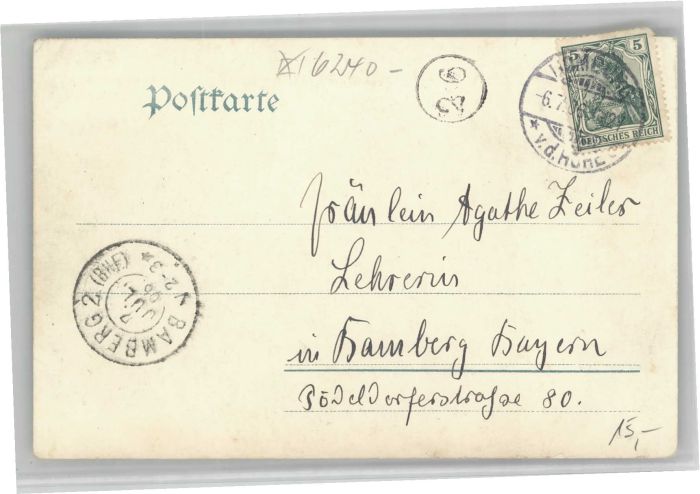 X16240-
Postkarte
5
DEUTSCHES REICH
-6.7.
* v.d. HÖHE
Fräulein Agathe Zeiler
Lehrerin
in Bamberg Bayern
Pödeldorferstraße 80.
BAMBERG 2 (BHF) * V. 2-3
7
JUL
15,-